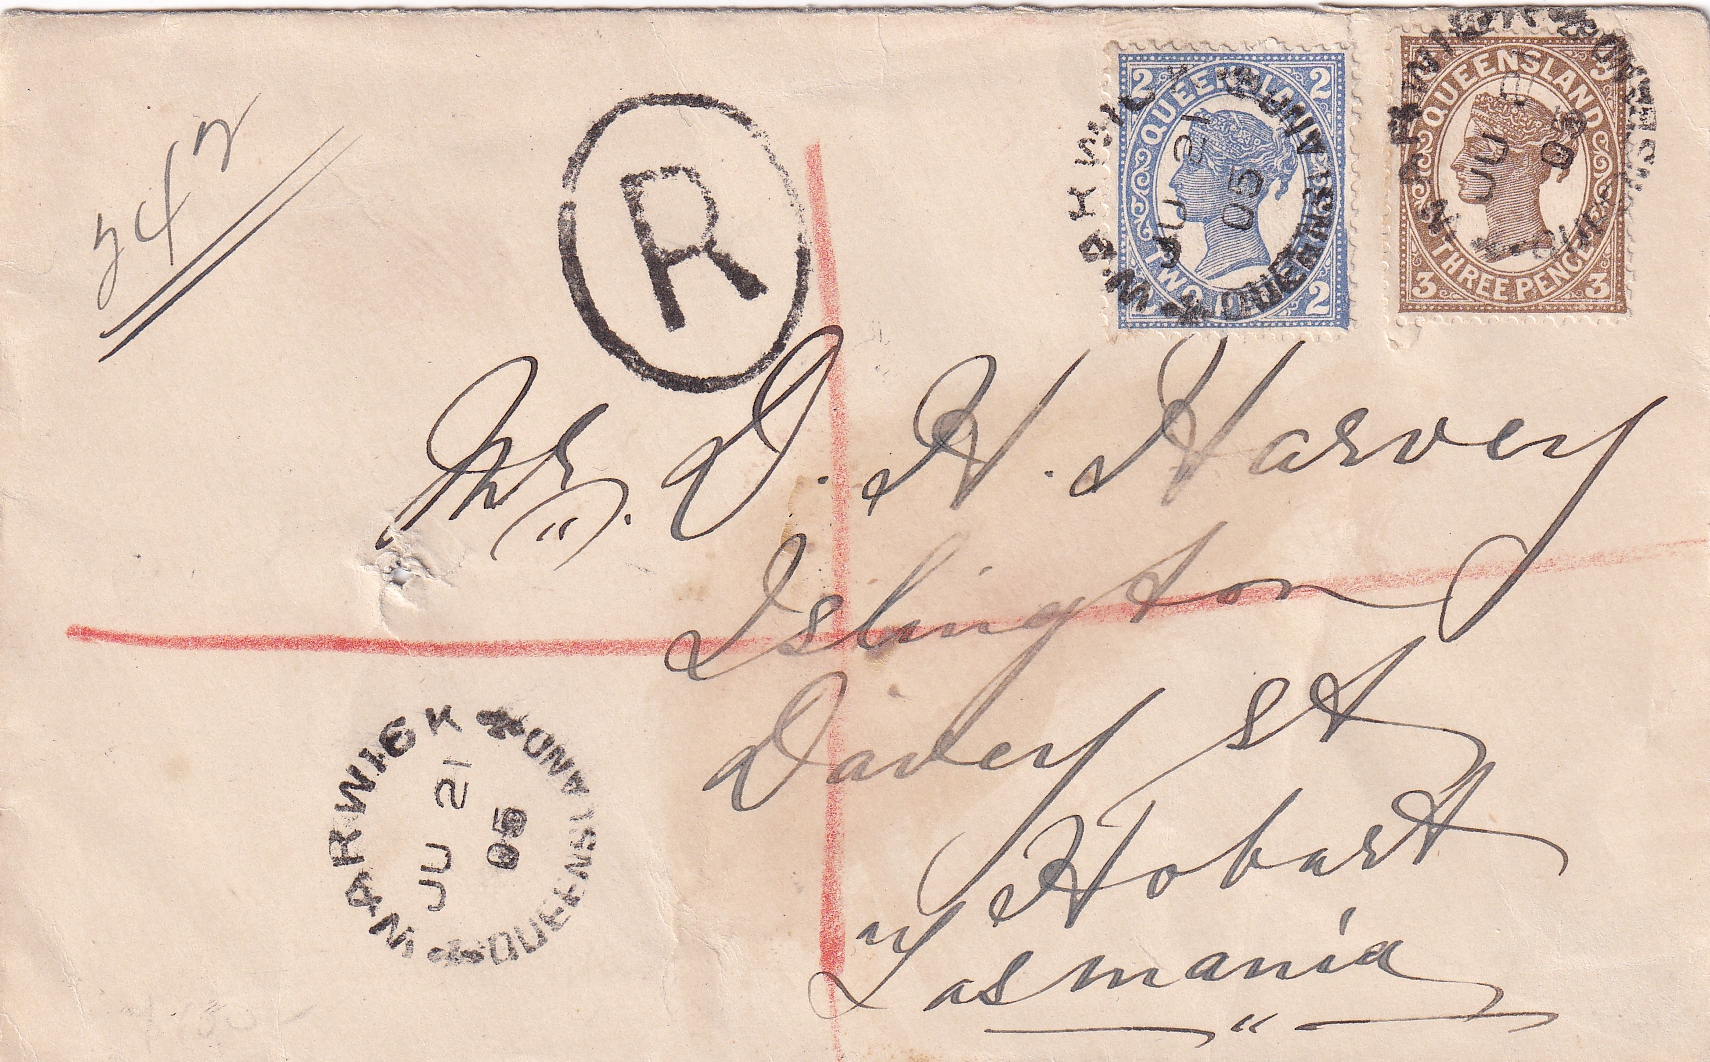 247
R
2 QUEENSLAND 2
TWO PENCE 2
WARWICK QUEENSLAND
JU 21
05
QUEENSLAND 3
3 THREE PENCE 3
WARWICK QUEENSLAND
JU
05
Mr. D. H. Harvey
Islington
Davey St
Hobart
Tasmania
WARWICK QUEENSLAND
JU 21
05